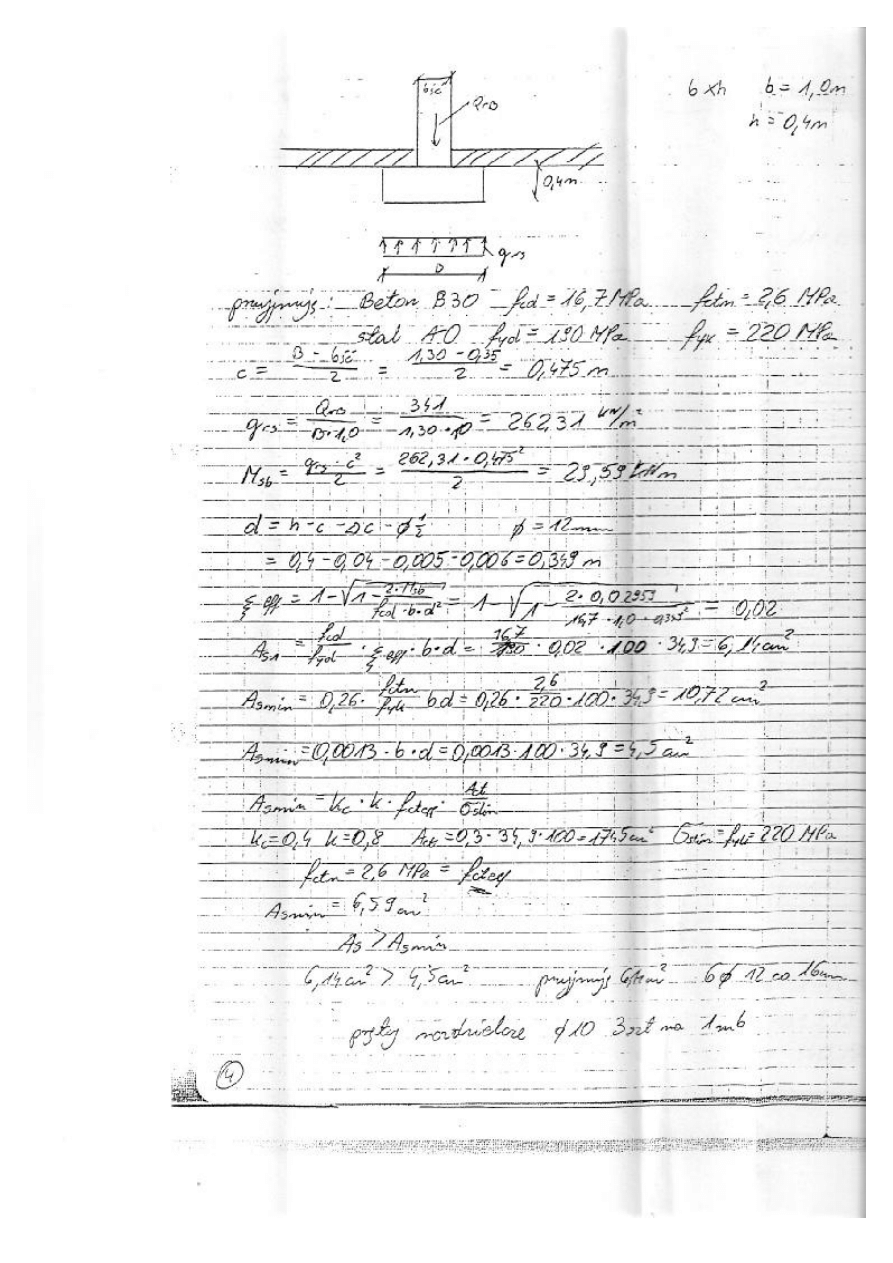 bśc
QrB
b x h b = 1,0m
h = 0,4m
0,4m
qrs
B
przyjmuję: Beton B30 fcd = 16,7 MPa fctm = 2,6 MPa
stal A0 fyd = 190 MPa fyk = 220 MPa
c = (B - bśc)/2 = (1,30 - 0,35)/2 = 0,475 m
qrs = QrB/(B·1,0) = 341/(1,30·1,0) = 262,31 kN/m²
Msb = (qrs · c²)/2 = (262,31 · 0,475²)/2 = 29,59 kNm
d = h - c - Δc - φ ½ φ = 12mm
= 0,4 - 0,04 - 0,005 - 0,006 = 0,349 m
ξeff = 1 - √(1 - (2·Msb)/(fcd·b·d²)) = 1 - √(1 - (2·0,02959)/(16,7·1,0·0,349²)) = 0,02
As1 = fcd/fyd · ξeff · b · d = 16,7/190 · 0,02 · 100 · 34,9 = 6,14 cm²
Asmin = 0,26 · fctm/fyk bd = 0,26 · 2,6/220 · 100 · 34,9 = 10,72 cm²
Asmin = 0,0013 · b · d = 0,0013 · 100 · 34,9 = 4,5 cm²
Asmin = kc · k · fcteff · At/σslim
kc = 0,4 k = 0,8 = 0,3 · 34,9 · 100 = 1745 cm² σslim = fyk = 220 MPa
fctm = 2,6 MPa = fcteff
Asmin = 6,59 cm²
As > Asmin
6,14 cm² > 4,5 cm² przyjmuję cm² 6 φ 12 co 16cm
pręty rozdzielcze φ10 3szt na 1mb
4